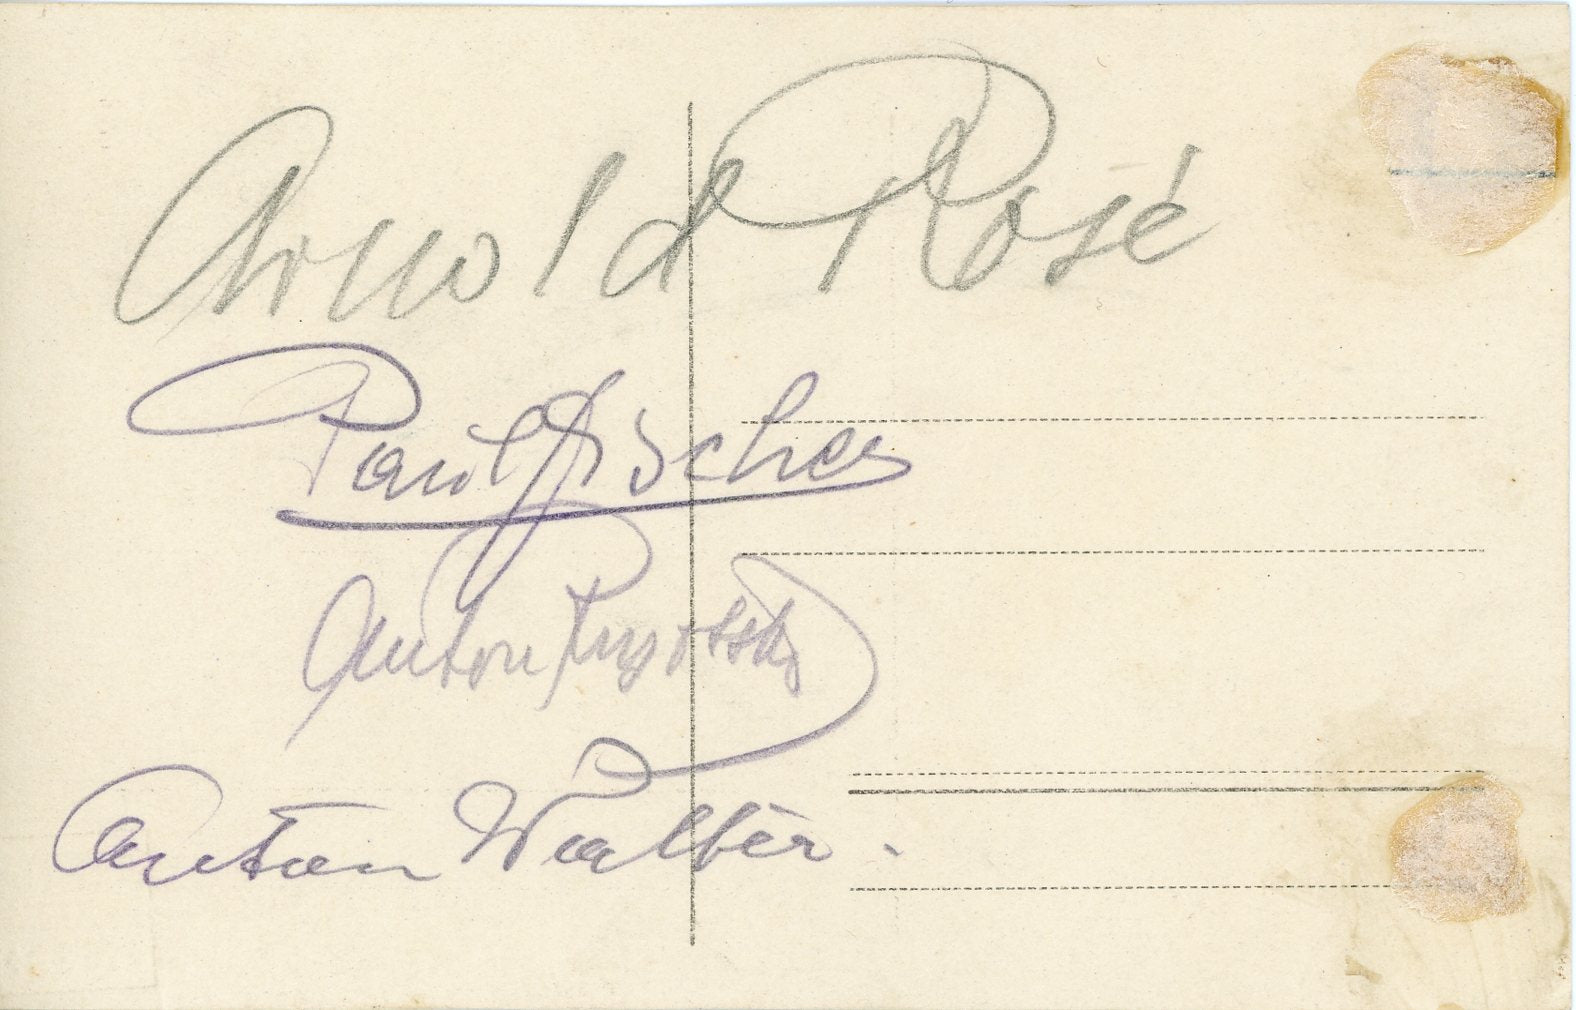 Arnold Rosé
Paul Fischer
Anton Ruzitska
Anton Walter.